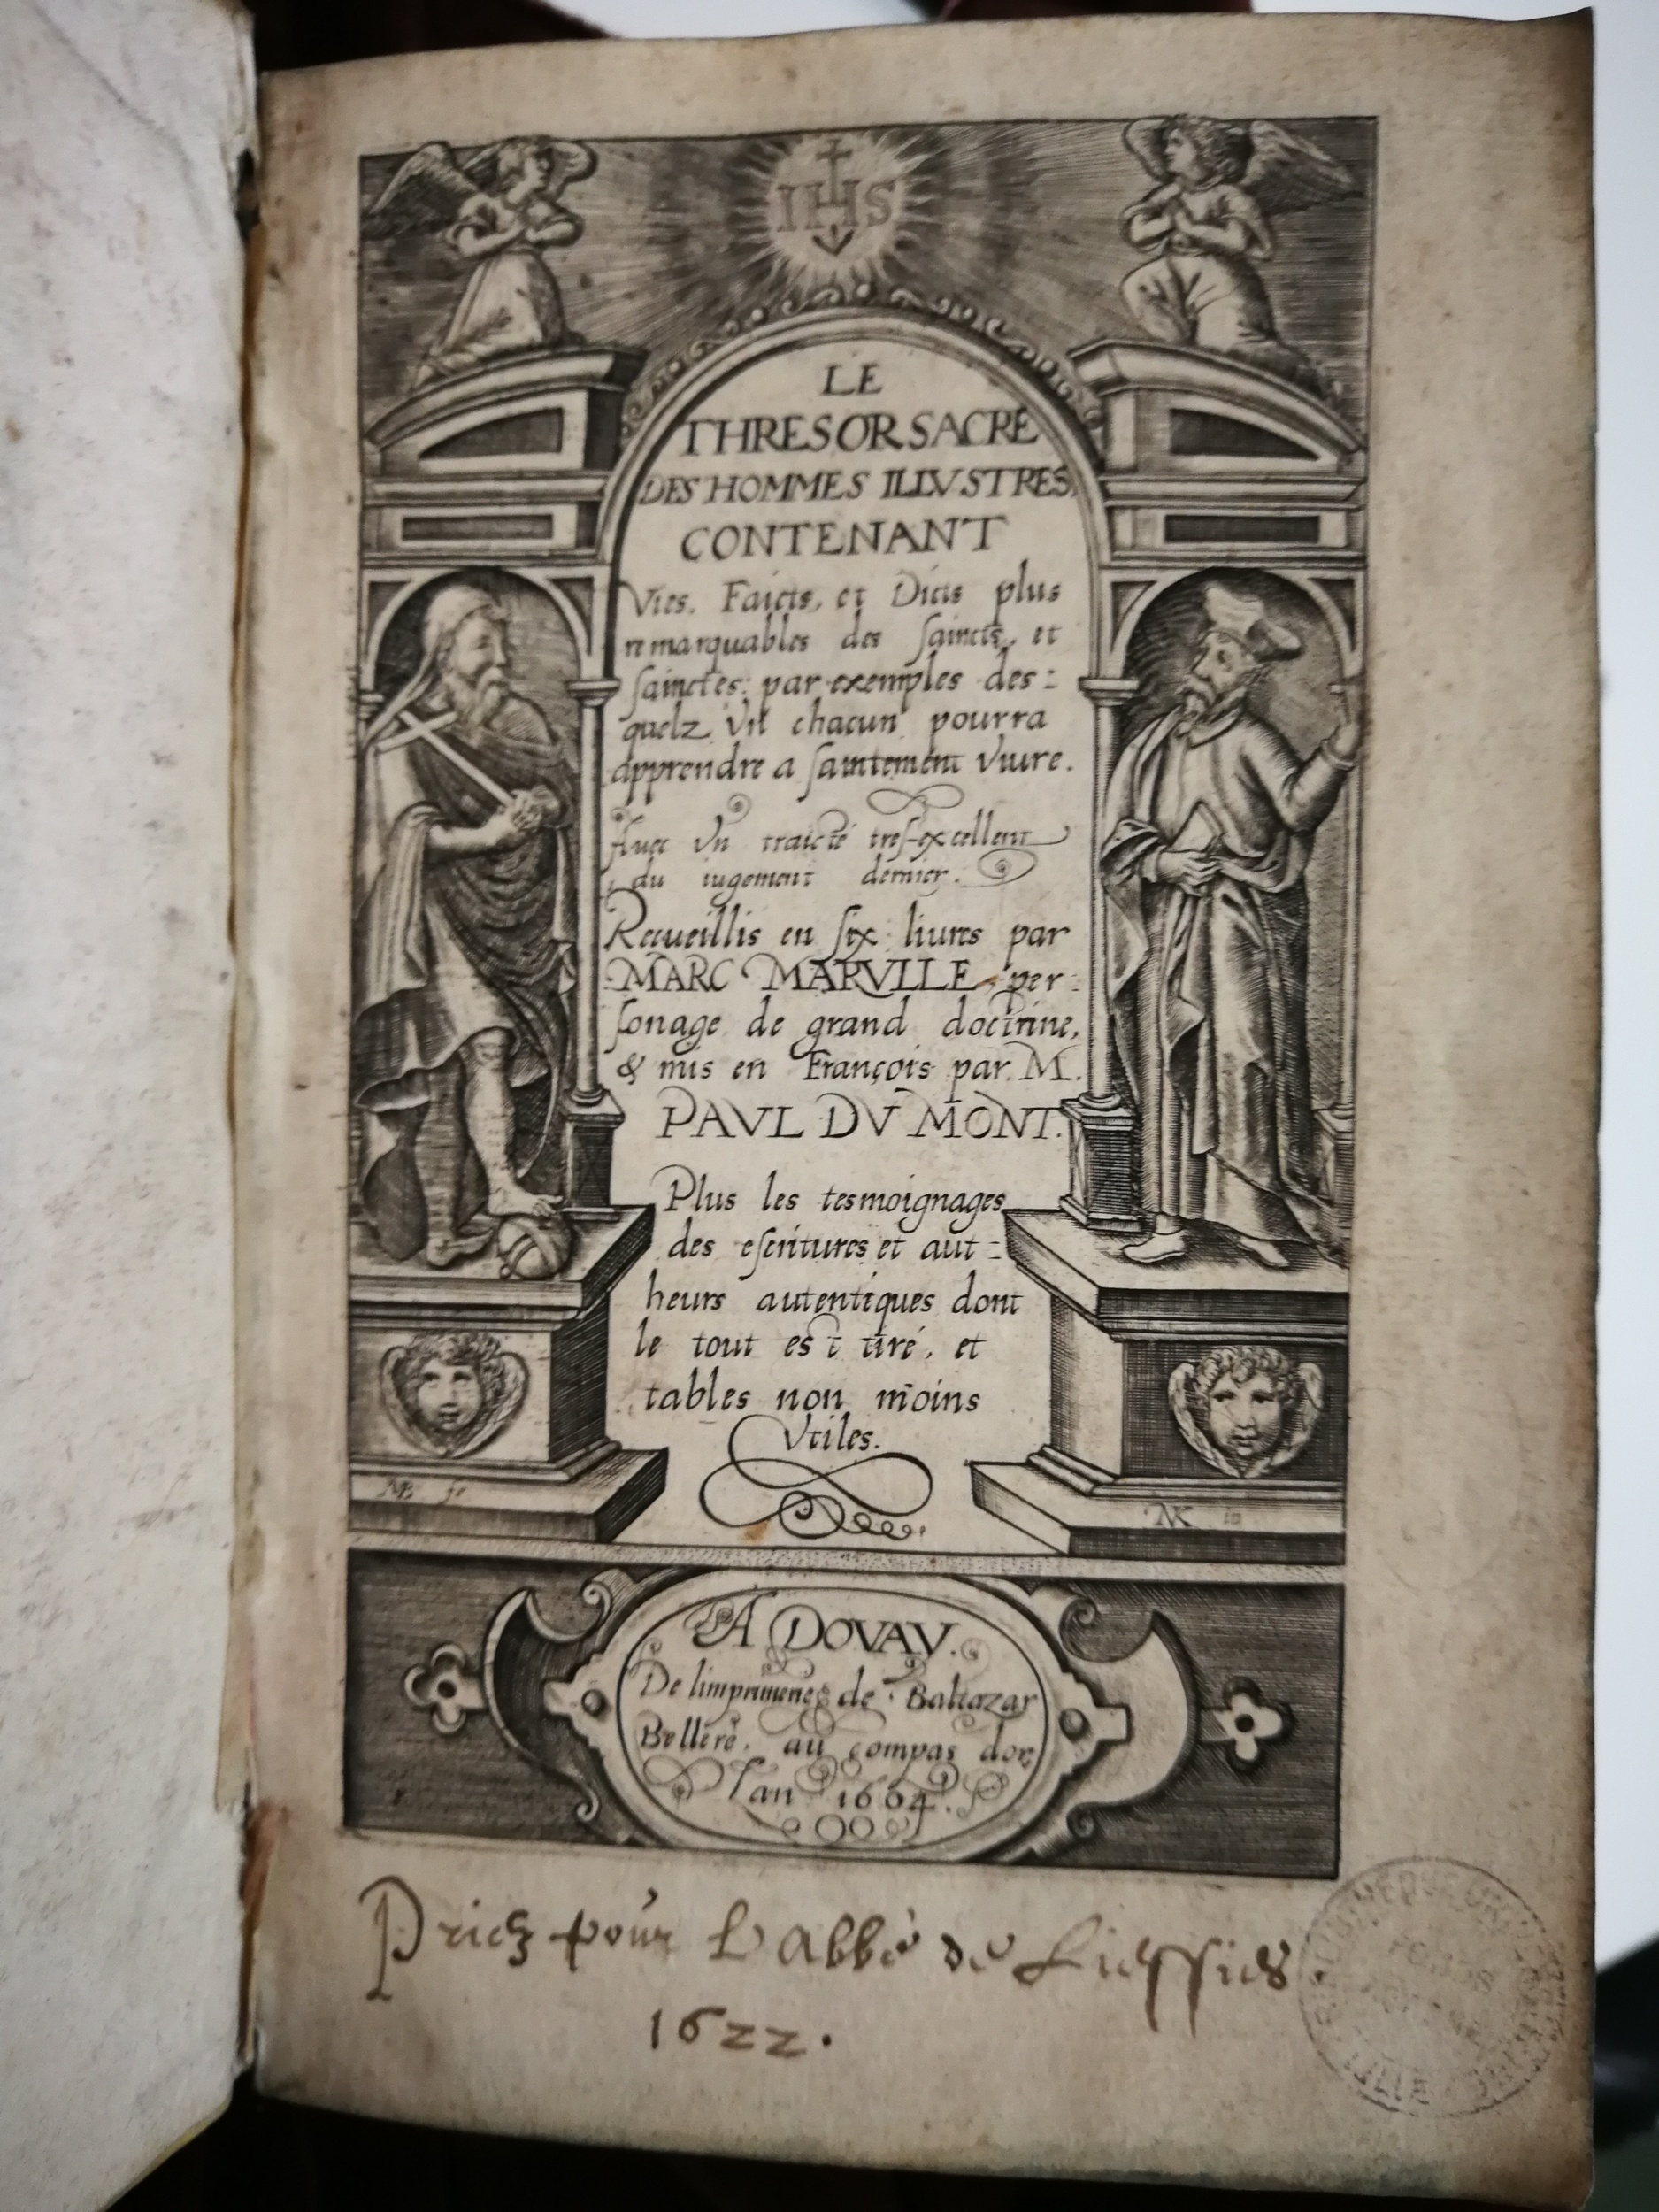 IHS
LE
THRESOR SACRE
DES HOMMES ILLVSTRES
CONTENANT
Vies, Faicts, et Dicts plus
remarquables des ſaincts, et
ſainctes: par exemples des-
quelz vn chacun pourra
apprendre a ſaintement viure.
Auec vn traicté treſ-excellent
du iugement dernier.
Recueillis en ſix liures par
MARC MARVLLE, per-
ſonage de grand doctrine,
& mis en François par M.
PAVL DV MONT.
Plus les tesmoignages
des eſcritures et aut-
heurs autentiques dont
le tout est tiré, et
tables non moins
vtiles.
MB fe
MK in
A DOVAY.
De limprimerie de Baltazar
Bellere, au compas dor,
lan 1604.
Priez pour L'abbé de Lieſſies
1622.
LILLE